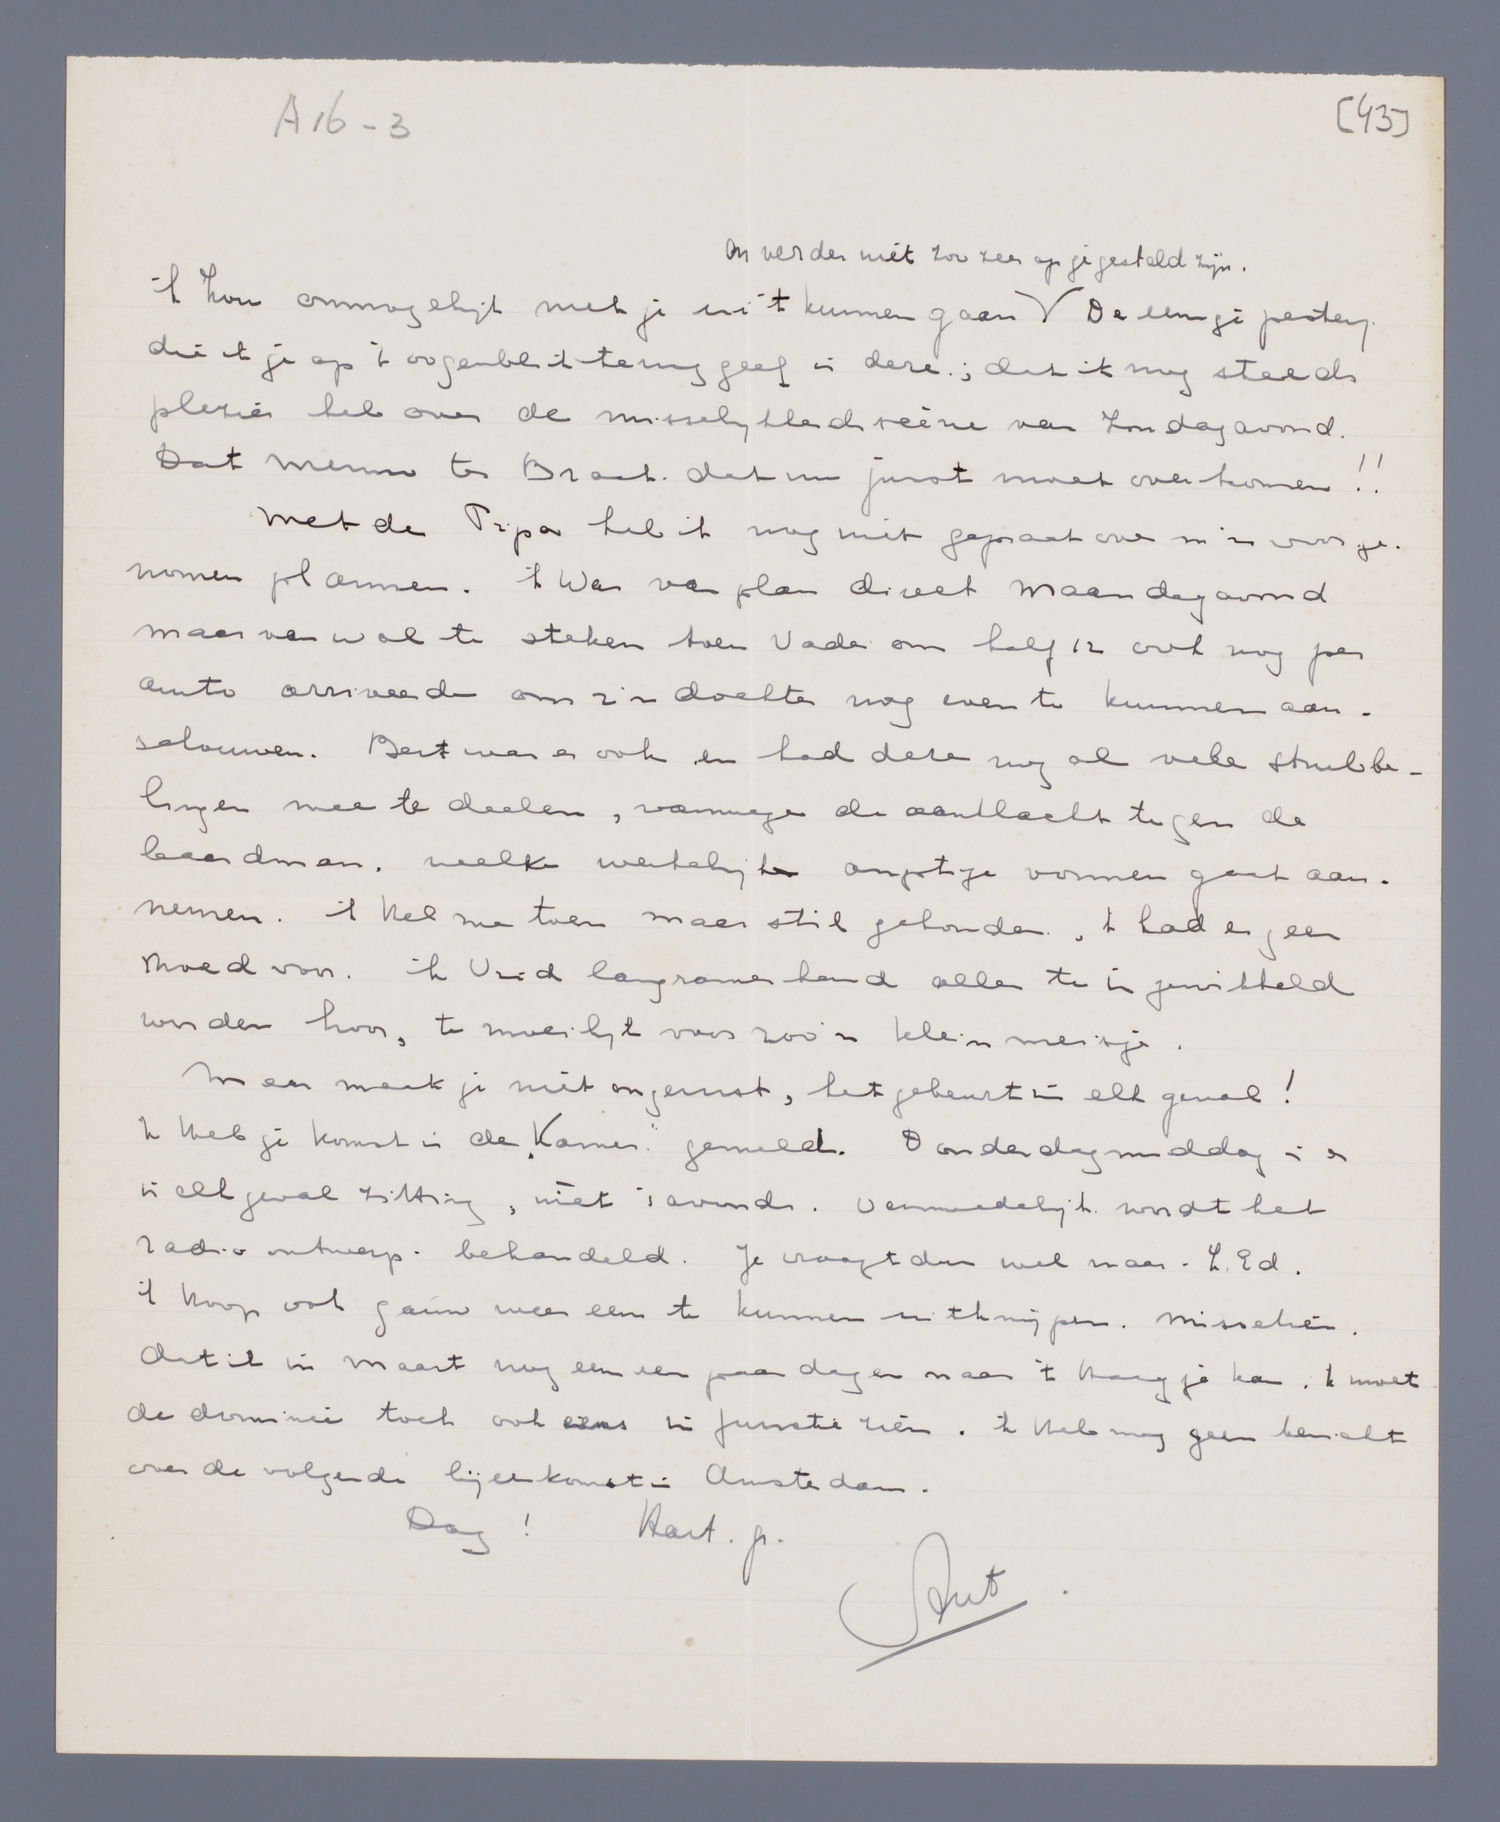 A16-3
[43]
en verder niet zoo zeer op je gesteld zijn.
ik zou onmogelijk met je uit kunnen gaan V De eenige pesterij
die ik je op 't oogenblik terug geef is deze: dat ik nog steeds
plezier heb over de misselijkheidscène van Zondagavond.
Dat Menno ter Braak dat nu juist moet overkomen!!
Met de Pipa heb ik nog niet gepraat over m'n voorge-
nomen plannen. ik was van plan direct Maandagavond
maar van wal te steken toen Vader om half 12 ook nog per
auto arriveerde om z'n dochter nog even te kunnen aan-
schouwen. Bert was er ook en had deze nog al vele strubbe-
lingen mee te deelen, vanwege de aanklacht tegen de
baardman, welke werkelijke angstige vormen gaat aan-
nemen. ik heb me toen maar stil gehouden, 'k had er geen
moed voor. ik vind langzamerhand alles te ingewikkeld
worden hoor, te moeilijk voor zoo'n klein meisje.
Maar maak je niet ongerust, het gebeurt in elk geval!
Ik heb je komst in de „Kamer" gemeld. Donderdagmiddag is er
in elk geval zitting, niet 's avonds. Vermoedelijk wordt het
radio ontwerp behandeld. Je vraagt dan wel naar L. Ed.
ik hoop ook gauw weer eens te kunnen uitknijpen. Misschien
dat ik in Maart nog eens een paar dagen naar 't Haagje kan. 'k moet
de dominee toch ook eens in functie zien. ik heb nog geen bericht
over de volgende bijeenkomst in Amsterdam.
Dag! Hart. gr.
Ant.